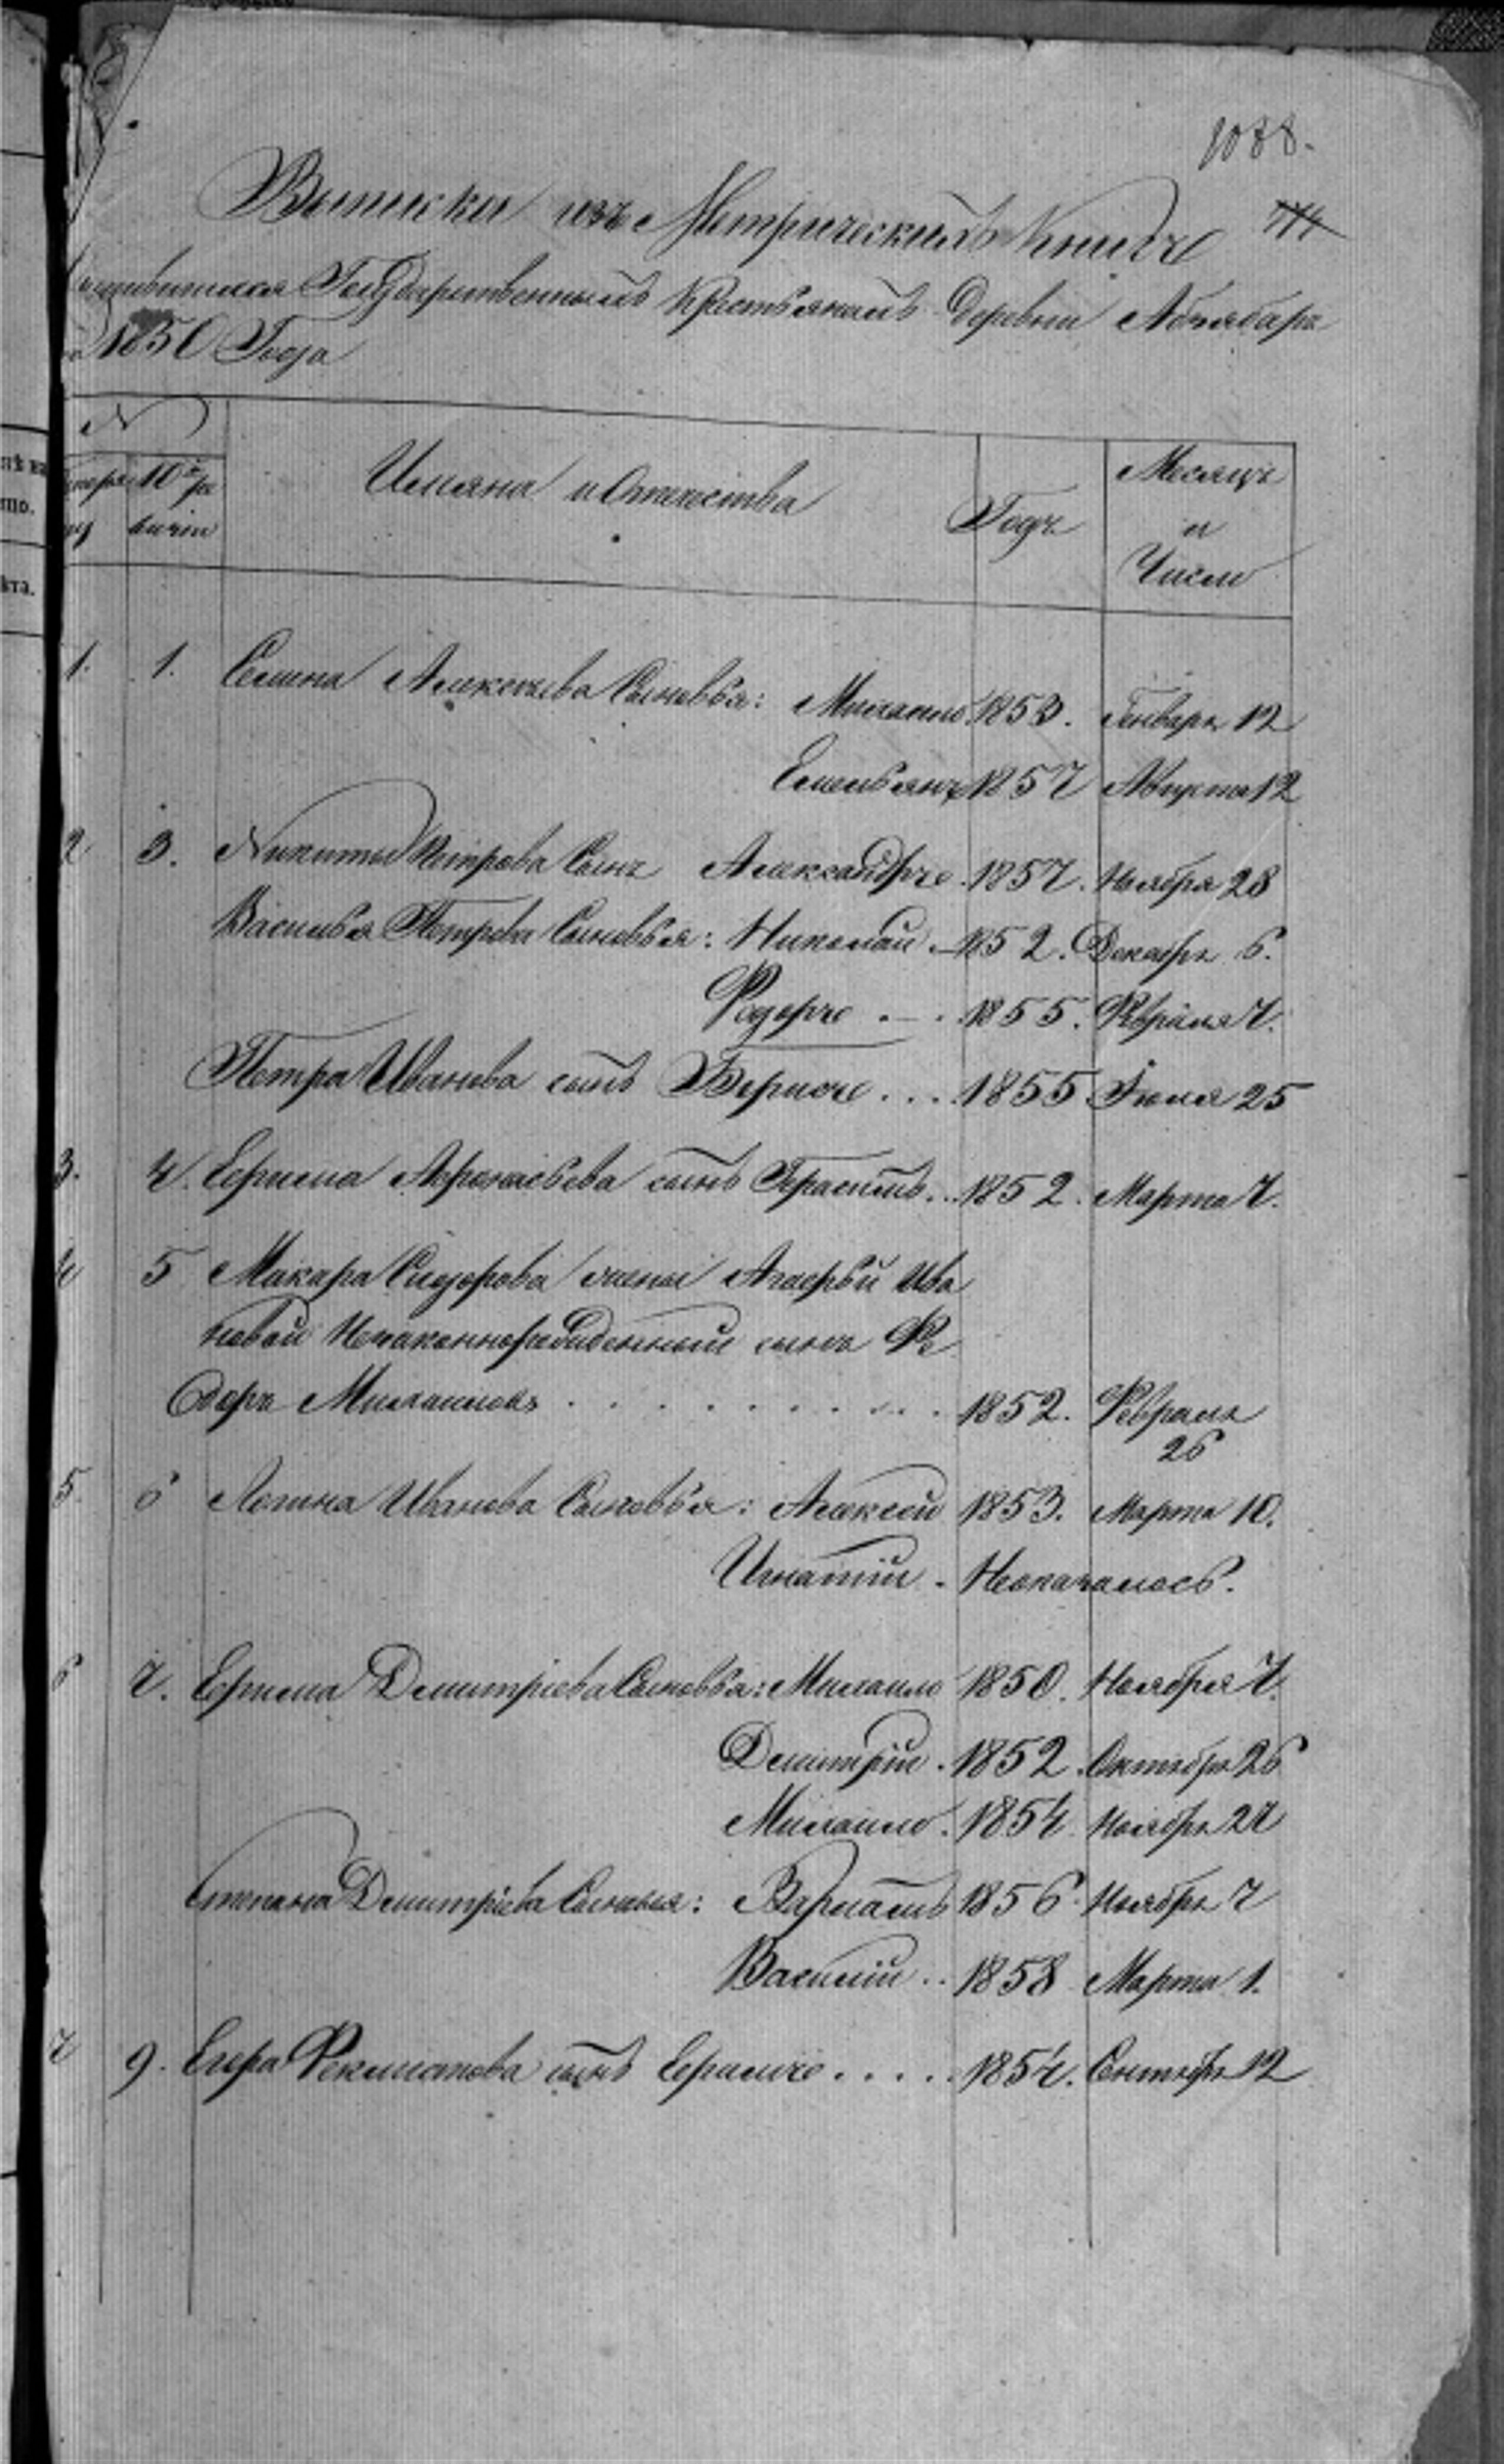 1088.
Выписки изъ Метрическихъ Книгъ
Государственнымъ Крестьянамъ Деревни
1850 Года
№
10й ре
визіи
Имяна и Отечества
Годъ
Месяцъ
и
Число
1. 1. Семена Алексеева Сыновья: Михаило 1853. Генваря 12
Емельянъ 1857 Августа 12
2 3. Никиты Петрова Сынъ Александръ 1857. Ноября 28
Василья Петрова Сыновья: Николай 1852. Декабря 6.
Федоръ . — . 1855. Февраля 7.
Петра Иванова сынъ . . . 1855 Июня 25
3. 4. Ефима Афонасьева сынъ Герасимъ .. 1852. Марта 7.
4 5 Макара Сидорова жены Агафьи Ива
новой Незаконнорожденный сынъ Фе
доръ Михаиловъ . . . . . . . . . 1852. Февраля
26
5. 6 Логина Иванова Сыновья: Алексей 1853. Марта 10.
Игнатій - Неоказалось.
6 7. Ефима Димитріева Сыновья: Михаило 1850. Ноября 7.
Димитрій . 1852. Октября 26
Михаило . 1854 Ноября 27
Степана Димитріева Сыновья: Варламъ 1856 Ноября 7
Василій .. 1858 Марта 1.
7 9. Егора сынъ Ефимъ . . . . . 1854. Сентября 12